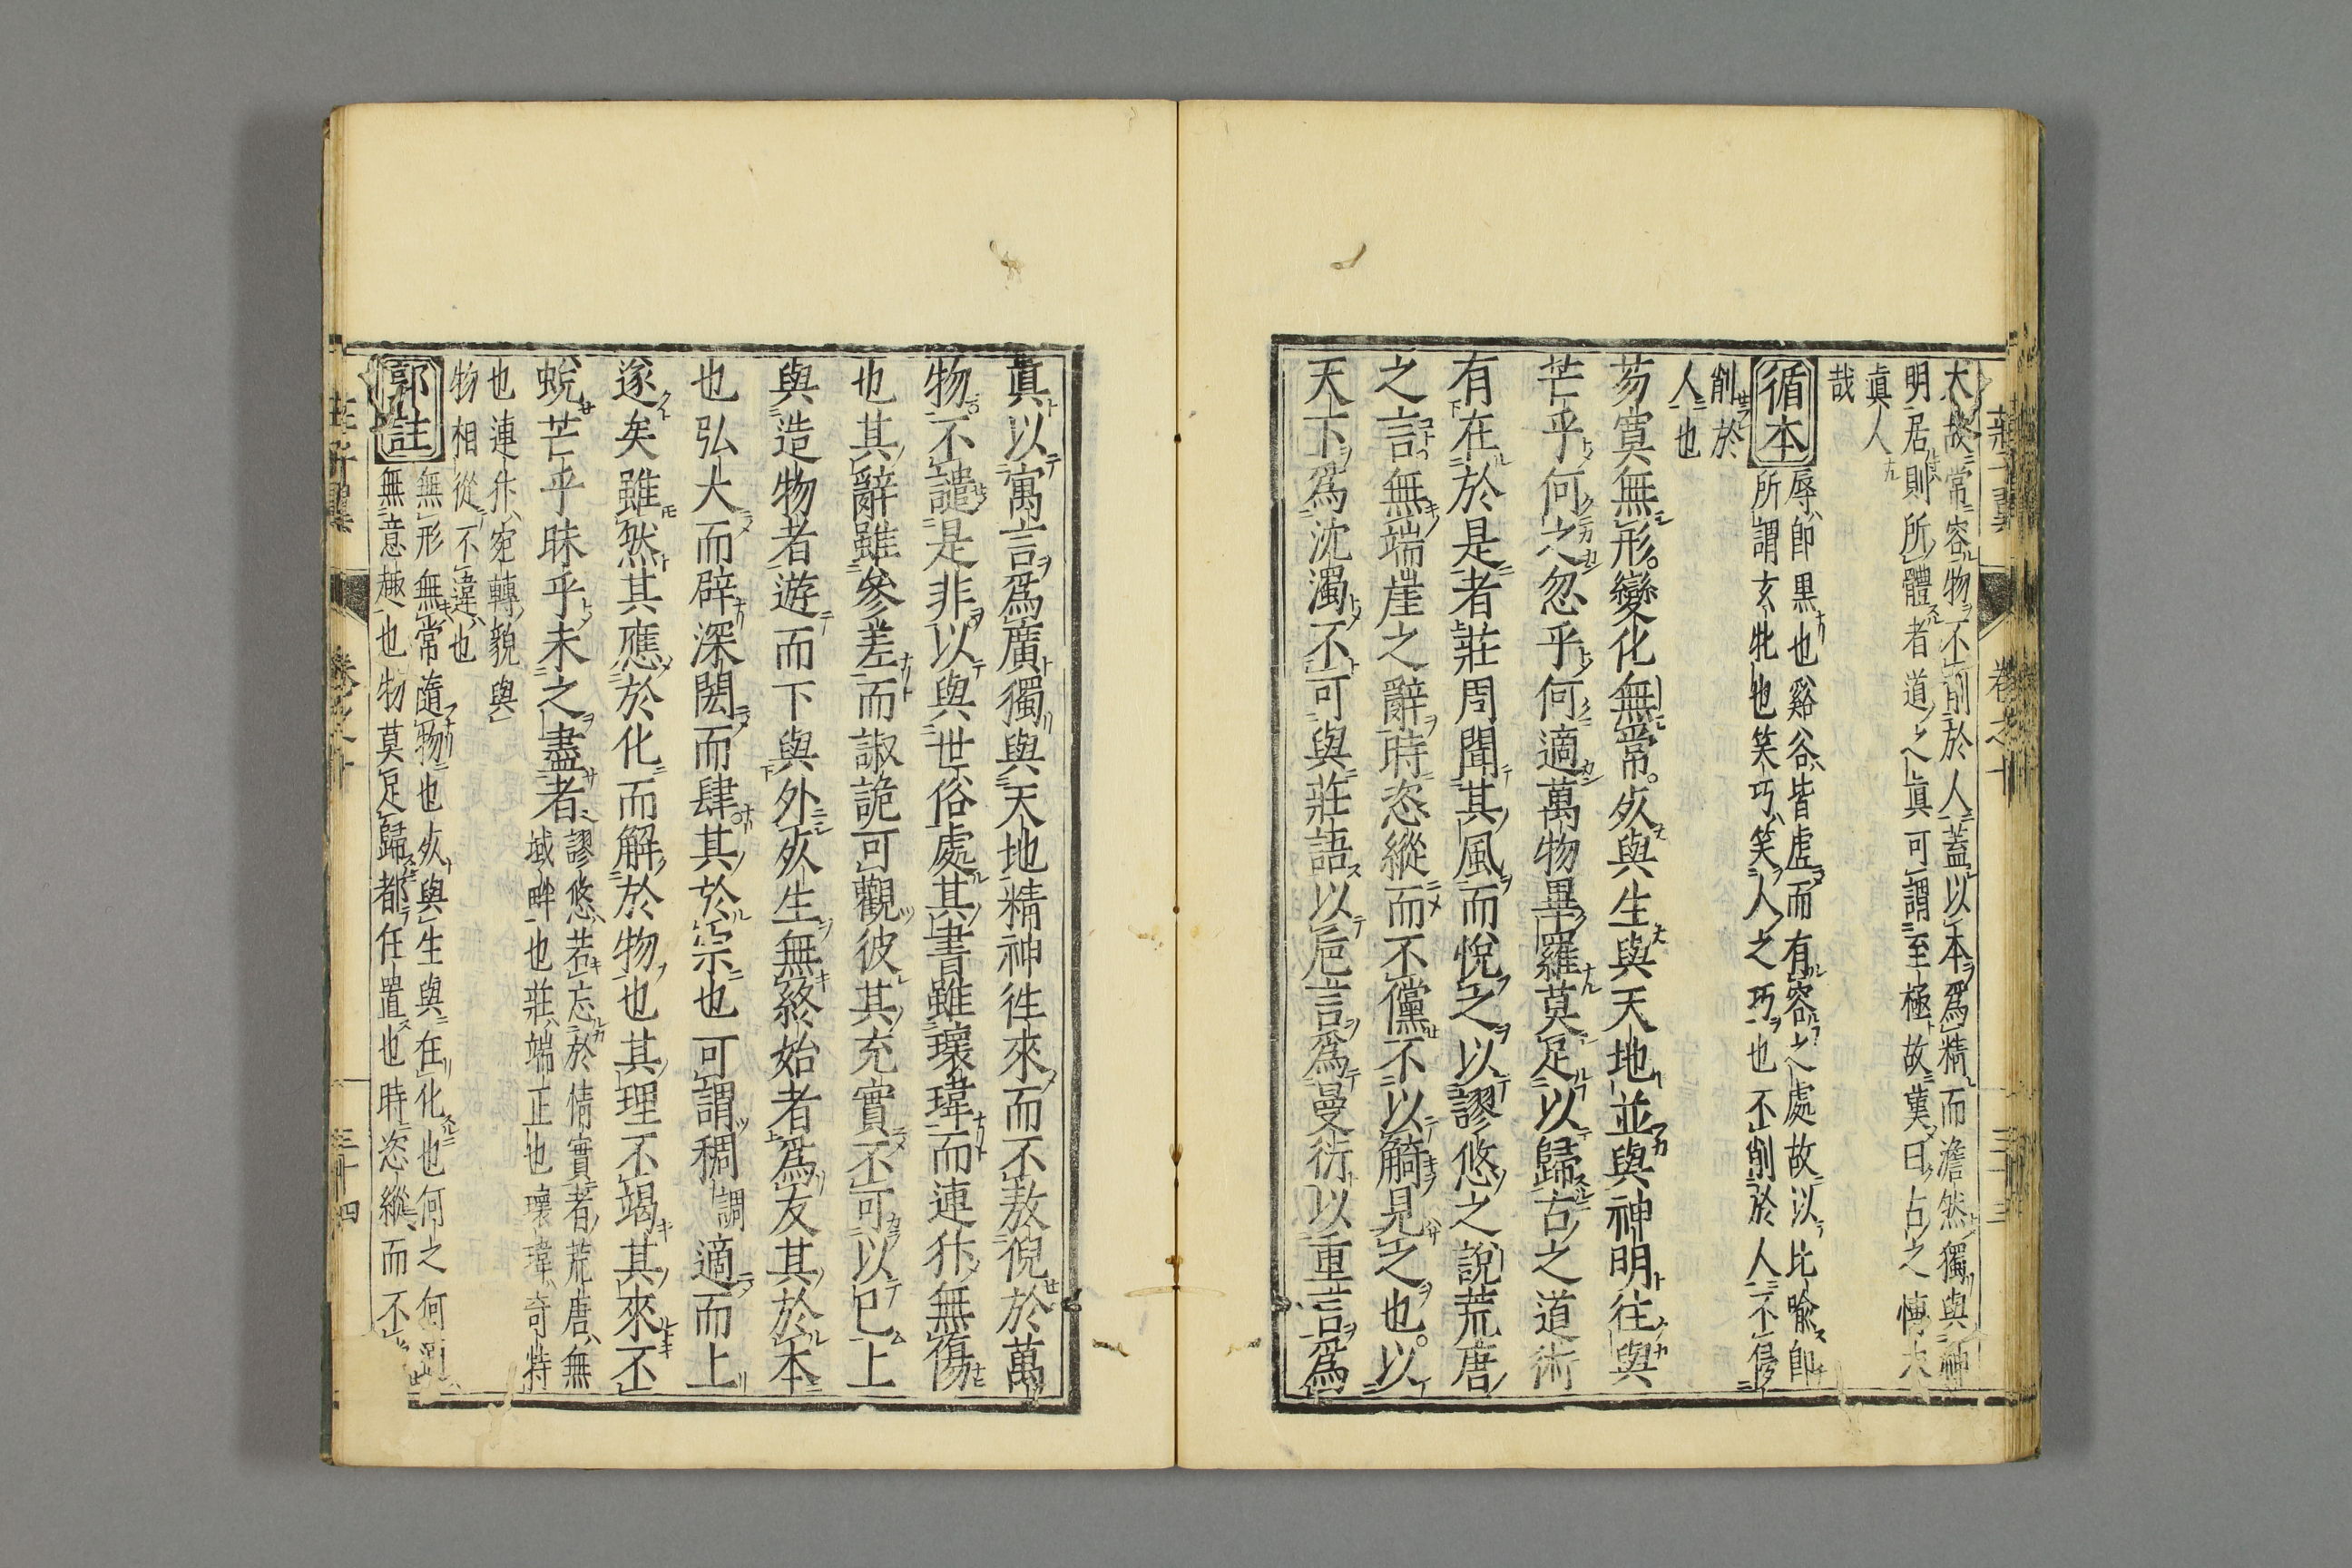 大故常容物不削於人蓋以本爲精而澹然獨與神
明居則所體者道之眞可謂至極故莫曰古之博大
眞人
哉
循本
辱即黒也谿谷皆虛而有容之處故以比喩即
所謂玄牝也笑巧笑人之巧也不削於人不侵
削於
人也
芴寞無形。變化無常。死與生與天地並與神明往與
芒乎何之忽乎何適萬物畢羅莫足以歸古之道術
有在於是者莊周聞其風而悅之以謬悠之說荒唐
之言無端崖之辭時恣縱而不儻不以觭見之也。以
天下爲沈濁不可與莊語以巵言爲曼衍以重言爲
眞以寓言爲廣獨與天地精神徃來而不敖倪於萬
物不譴是非以與世俗處其書雖瓌瑋而連犿無傷
也其辭雖參差而諔詭可觀彼其充實不可以已上
與造物者遊而下與外死生無終始者爲友其於本
也弘大而辟深閎而肆其於宗也可謂稠調適而上
遂矣雖然其應於化而解於物也其理不竭其來不
蛻芒乎昧乎未之盡者
謬悠若忘於情實者荒唐無
域畔也莊端正也瓌瑋奇特
也連犿宛轉貌與
物相從不違也
郭註
無形無常隨物也死與生與在化也何之何適
無意趣也物莫足歸都任置也時恣縱而不
莊子翼 卷之十 三十三
三十四